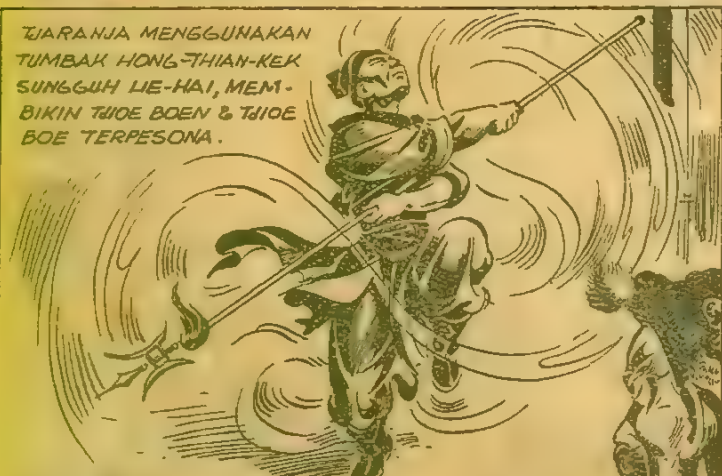 TJARANJA MENGGUNAKAN
TUMBAK HONG-THIAN-KEK
SUNGGUH LIE-HAI, MEM-
BIKIN TJIOE BOEN & TJIOE
BOE TERPESONA.